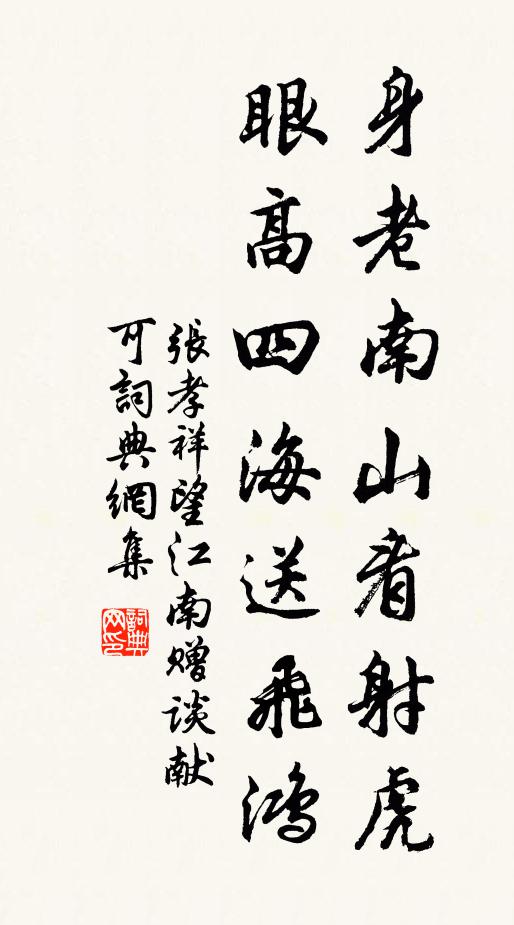 身老南山看射虎
眼高四海送飛鴻
張孝祥望江南贈談献
可詞典網集
詞典
网印